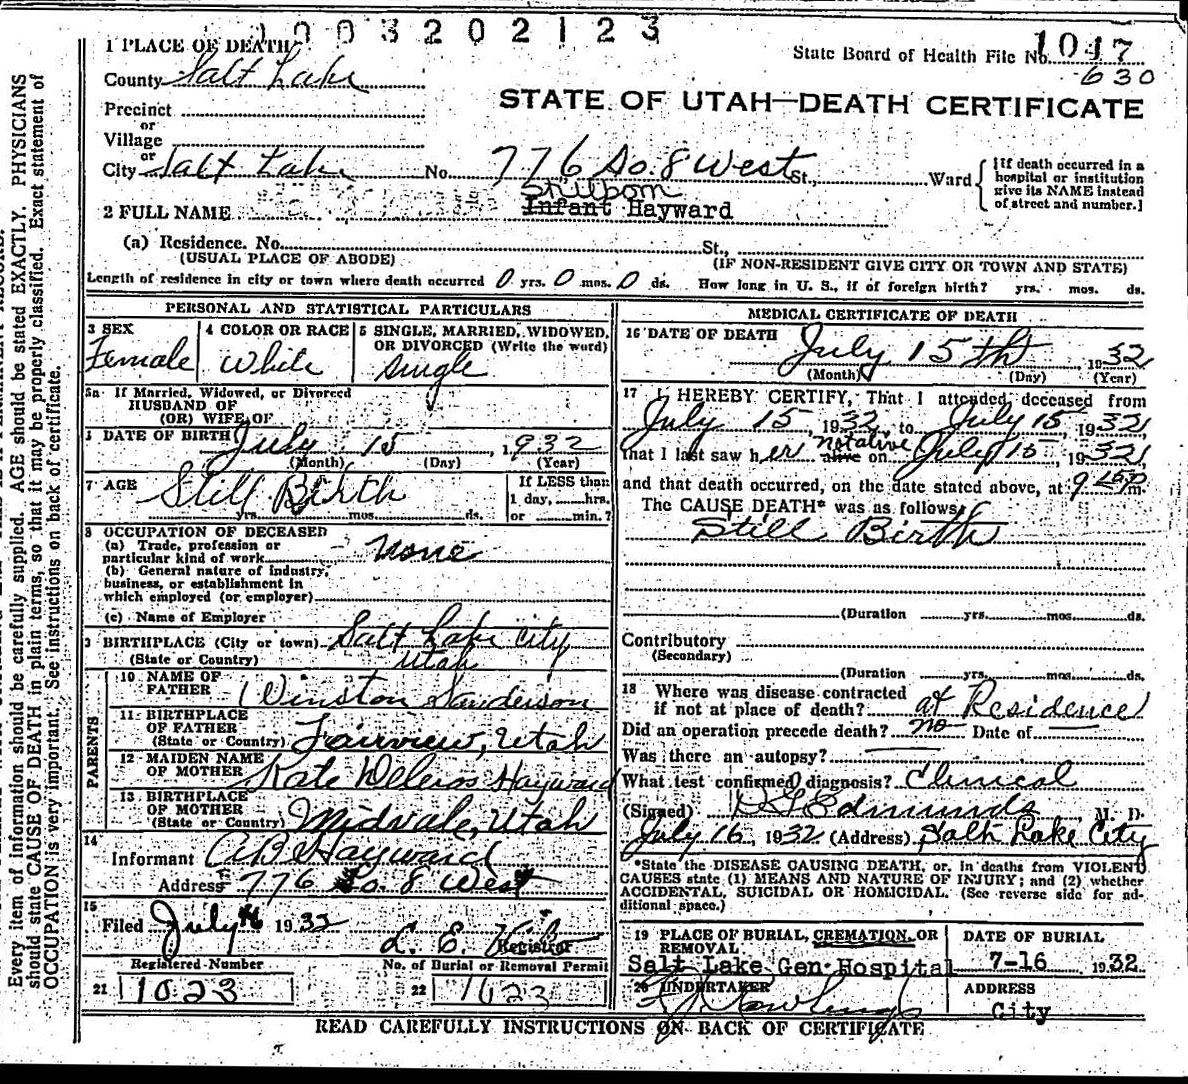 1003202123
1 PLACE OF DEATH
State Board of Health File No. 1047
630
County Salt Lake
STATE OF UTAH—DEATH CERTIFICATE
Precinct
or
Village
or
City Salt Lake No. 776 So. 8 West St., Ward
[If death occurred in a hospital or institution give its NAME instead of street and number.]
Stillborn
2 FULL NAME Infant Hayward
(a) Residence. No. St.,
(USUAL PLACE OF ABODE) (IF NON-RESIDENT GIVE CITY OR TOWN AND STATE)
Length of residence in city or town where death occurred 0 yrs. 0 mos. 0 ds. How long in U. S., if of foreign birth? yrs. mos. ds.
PERSONAL AND STATISTICAL PARTICULARS
3 SEX 4 COLOR OR RACE 5 SINGLE, MARRIED, WIDOWED,
OR DIVORCED (Write the word)
Female White Single
5a If Married, Widowed, or Divorced
HUSBAND OF
(OR) WIFE OF
DATE OF BIRTH July 15 1932
(Month) (Day) (Year)
7 AGE Still Birth
yrs. mos. ds.
If LESS than
1 day, hrs.
or min.?
8 OCCUPATION OF DECEASED
(a) Trade, profession or
particular kind of work None
(b) General nature of industry,
business, or establishment in
which employed (or employer)
(c) Name of Employer
9 BIRTHPLACE (City or town) Salt Lake City
(State or Country) Utah
PARENTS
10 NAME OF
FATHER Winston Sanderson
11 BIRTHPLACE
OF FATHER
(State or Country) Fairview, Utah
12 MAIDEN NAME
OF MOTHER Kate Hayward
13 BIRTHPLACE
OF MOTHER
(State or Country) Midvale, Utah
14
Informant Hayward
Address 776 So. 8 West
15
Filed July 16 1932
L. E. Registrar
Registered Number No. of Burial or Removal Permit
21 1023 22 1623
MEDICAL CERTIFICATE OF DEATH
16 DATE OF DEATH July 15th 1932
(Month) (Day) (Year)
17 I HEREBY CERTIFY, That I attended deceased from
July 15, 1932, to July 15, 1932,
not alive
that I last saw her alive on July 15, 1932,
and that death occurred, on the date stated above, at 9 m.
The CAUSE DEATH* was as follows:
Still Birth
(Duration yrs. mos. ds.
Contributory
(Secondary)
(Duration yrs. mos. ds.
18 Where was disease contracted
if not at place of death? at Residence
Did an operation precede death? no Date of
Was there an autopsy?
What test confirmed diagnosis? Clinical
(Signed) Edmunds M. D.
July 16, 1932 (Address) Salt Lake City
*State the DISEASE CAUSING DEATH, or, in deaths from VIOLENT
CAUSES state (1) MEANS AND NATURE OF INJURY; and (2) whether
ACCIDENTAL, SUICIDAL OR HOMICIDAL. (See reverse side for ad-
ditional space.)
19 PLACE OF BURIAL, CREMATION, OR
REMOVAL
DATE OF BURIAL
Salt Lake Gen. Hospital 7-16 1932
20 UNDERTAKER ADDRESS
City
READ CAREFULLY INSTRUCTIONS ON BACK OF CERTIFICATE
Every item of information should be carefully supplied. AGE should be stated EXACTLY. PHYSICIANS
should state CAUSE OF DEATH in plain terms, so that it may be properly classified. Exact statement of
OCCUPATION is very important. See instructions on back of certificate.